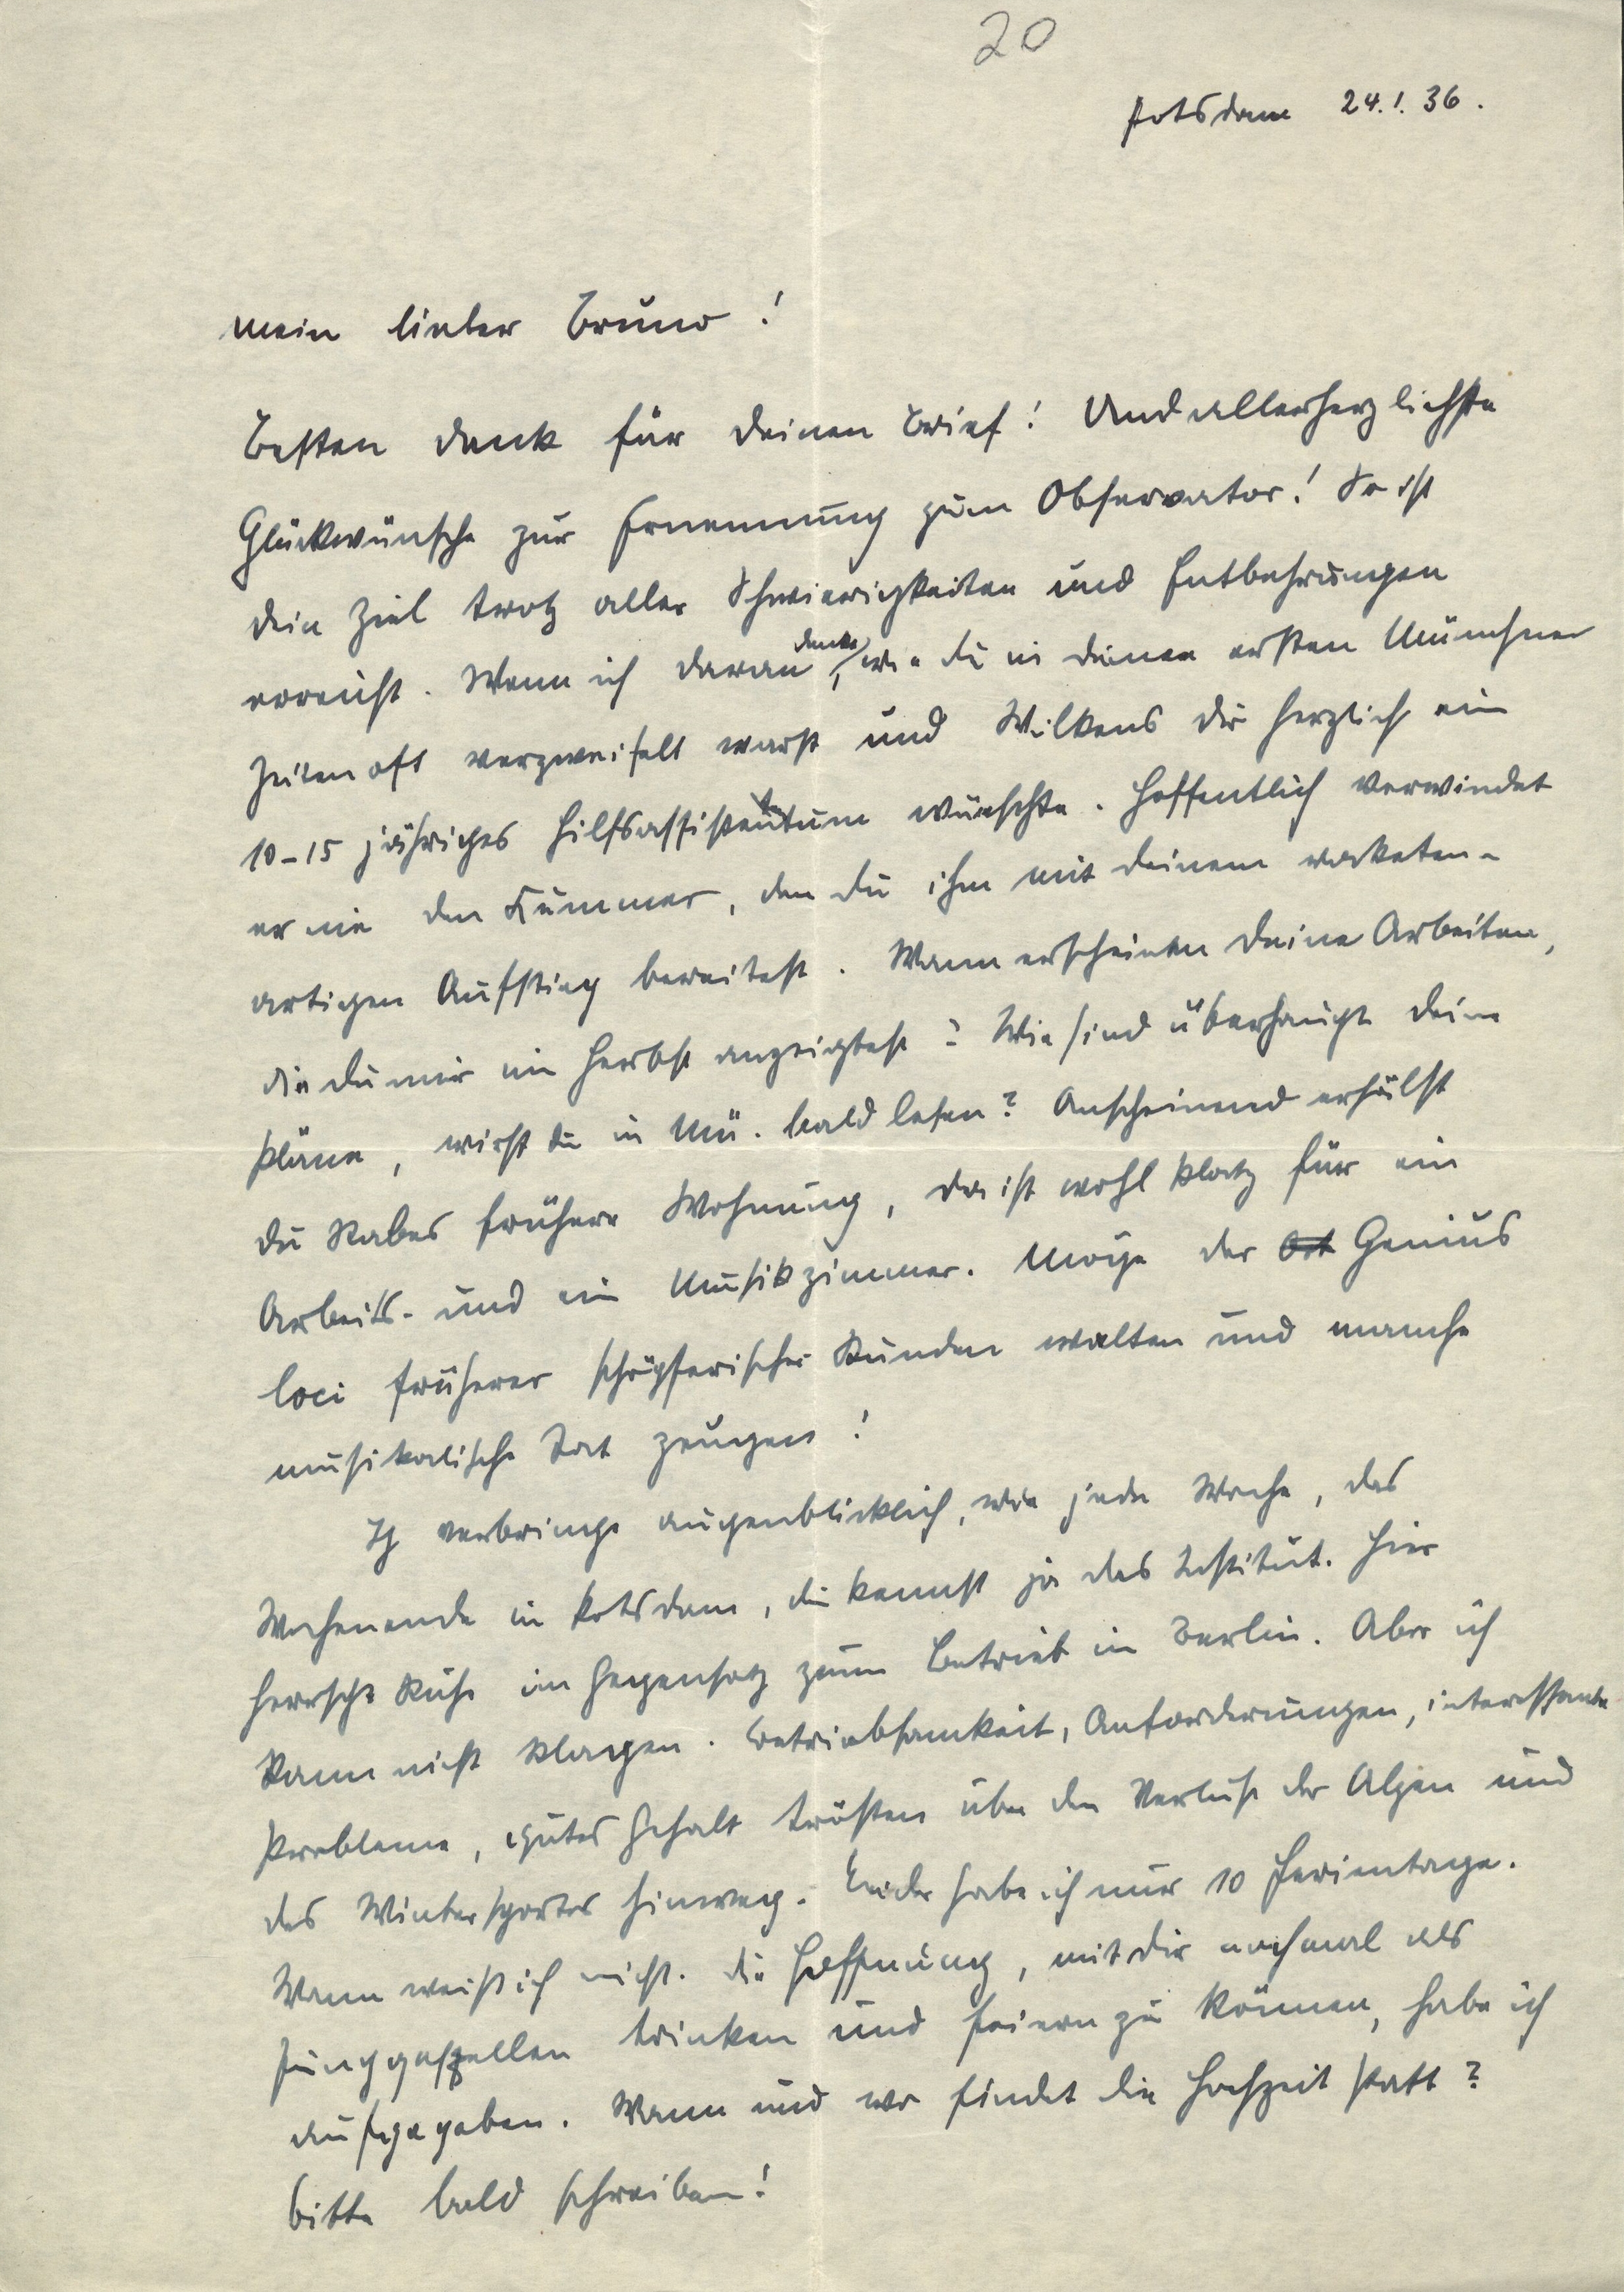 20
Potsdam 24.1.36.
Mein lieber Bruno!
Besten Dank für Deinen Brief! Und allerherzlichste
Glückwünsche zur Ernennung zum Observator! So ist
Dein Ziel trotz aller Schwierigkeiten und Entbehrungen
erreicht. Wenn ich daran denke, wie Du in Deinen ersten Münchner
Zeiten oft verzweifelt warst und Wilkens Dir herzlich ein
10-15 jähriges Hilfsassistentum wünschte. Hoffentlich verwindet
er nie den Kummer, den Du ihm mit Deinem raketen-
artigen Aufstieg bereitest. Wann erscheinen Deine Arbeiten,
die Du mir im Herbst anzeigtest? Wie sind überhaupt Deine
Pläne, wirst Du in Mü. bald lesen? Anscheinend erhälst
Du Rabes frühere Wohnung, da ist wohl Platz für ein
Arbeits- und ein Musikzimmer. Möge der Ort Genius
loci früherer schöpferischer Stunden walten und manche
musikalische Tat zeugen!
Ich verbringe augenblicklich, wie jede Woche, das
Wochenende in Potsdam, Du kennst ja das Institut. Hier
herrscht Ruhe im Gegensatz zum Betrieb in Berlin. Aber ich
kann nicht klagen. Betriebsamkeit, Anforderungen, interessante
Probleme, gutes Gehalt trösten über den Verlust der Alpen und
des Wintersportes hinweg. Leider habe ich nur 10 Ferientage.
Wann weiß ich nicht. Die Hoffnung, mit Dir nochmal als
Junggesellen trinken und feiern zu können, habe ich
aufgegeben. Wann und wo findet die Hochzeit statt?
Bitte bald schreiben!